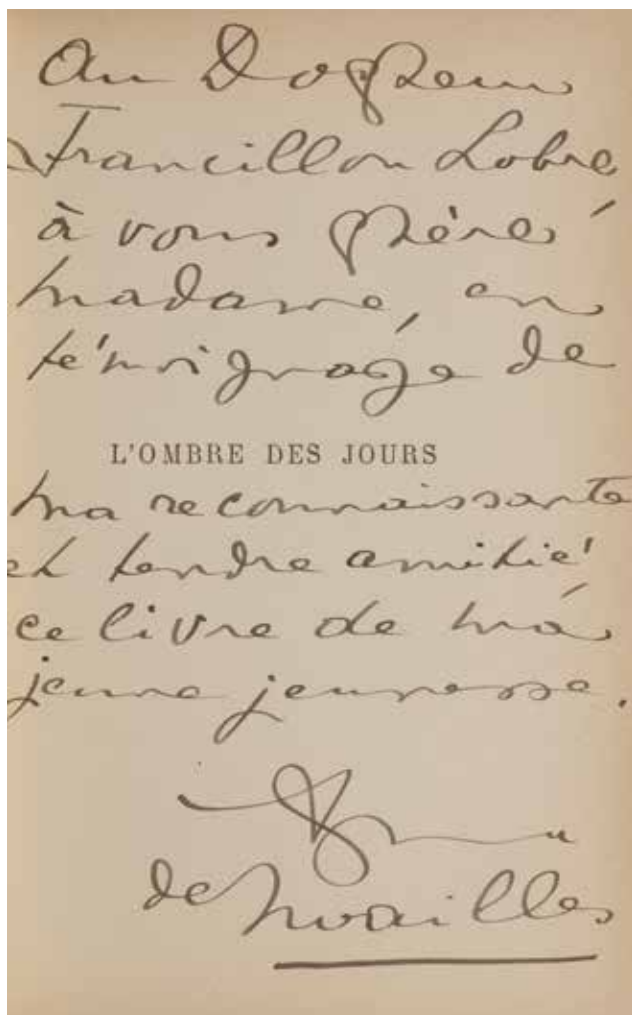 Au Docteur
Francillon Lobre
à vous chère
madame, en
témoignage de
L'OMBRE DES JOURS
ma reconnaissante
et tendre amitié
ce livre de ma
jeune jeunesse.
Anna
de Noailles